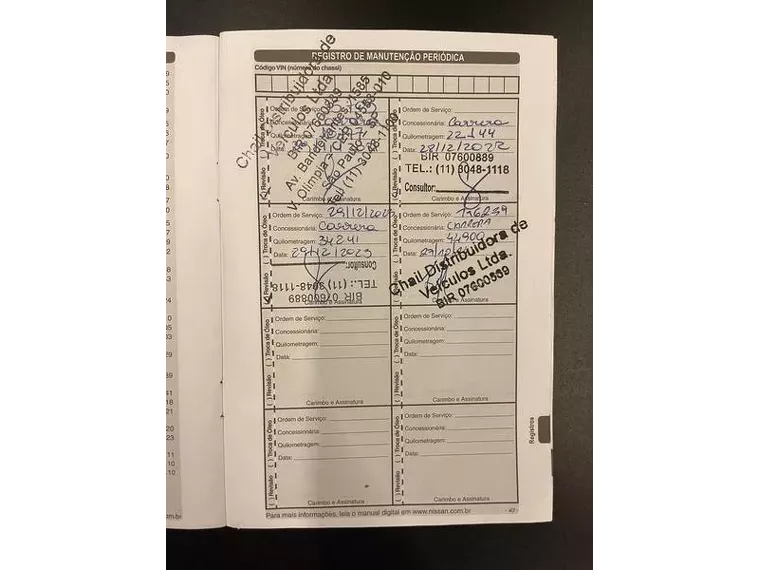 REGISTRO DE MANUTENÇÃO PERIÓDICA
Código VIN (número do chassi)
( ) Revisão ( ) Troca de Óleo
Ordem de Serviço:
Concessionária:
Quilometragem:
Data:
Chail Distribuidora de
Veículos Ltda.
BIR 07600889
Av. Bandeirantes, 1585
V. Olímpia - CEP 04553-010
São Paulo - SP
Tel (11) 3048-1100
Carimbo e Assinatura
Revisão ( ) Troca de Óleo
Ordem de Serviço:
Concessionária: Carrera
Quilometragem: 22144
Data: 28/12/2022
BIR 07600889
TEL.: (11) 3048-1118
Consultor:
Carimbo e Assinatura
Revisão ( ) Troca de Óleo
Ordem de Serviço: 29/12/2023
Concessionária: Carrera
Quilometragem: 34241
Data: 29/12/2023
Consultor:
TEL.: (11) 3048-1118
BIR 07600889
Carimbo e Assinatura
( ) Revisão ( ) Troca de Óleo
Ordem de Serviço: 156239
Concessionária: CARRERA
Quilometragem: 44900
Data:
Chail Distribuidora de
Veículos Ltda.
BIR 07600889
Carimbo e Assinatura
( ) Revisão ( ) Troca de Óleo
Ordem de Serviço:
Concessionária:
Quilometragem:
Data:
Carimbo e Assinatura
( ) Revisão ( ) Troca de Óleo
Ordem de Serviço:
Concessionária:
Quilometragem:
Data:
Carimbo e Assinatura
( ) Revisão ( ) Troca de Óleo
Ordem de Serviço:
Concessionária:
Quilometragem:
Data:
Carimbo e Assinatura
( ) Revisão ( ) Troca de Óleo
Ordem de Serviço:
Concessionária:
Quilometragem:
Data:
Carimbo e Assinatura
Registros
Para mais informações, leia o manual digital em www.nissan.com.br
- 43 -
om.br